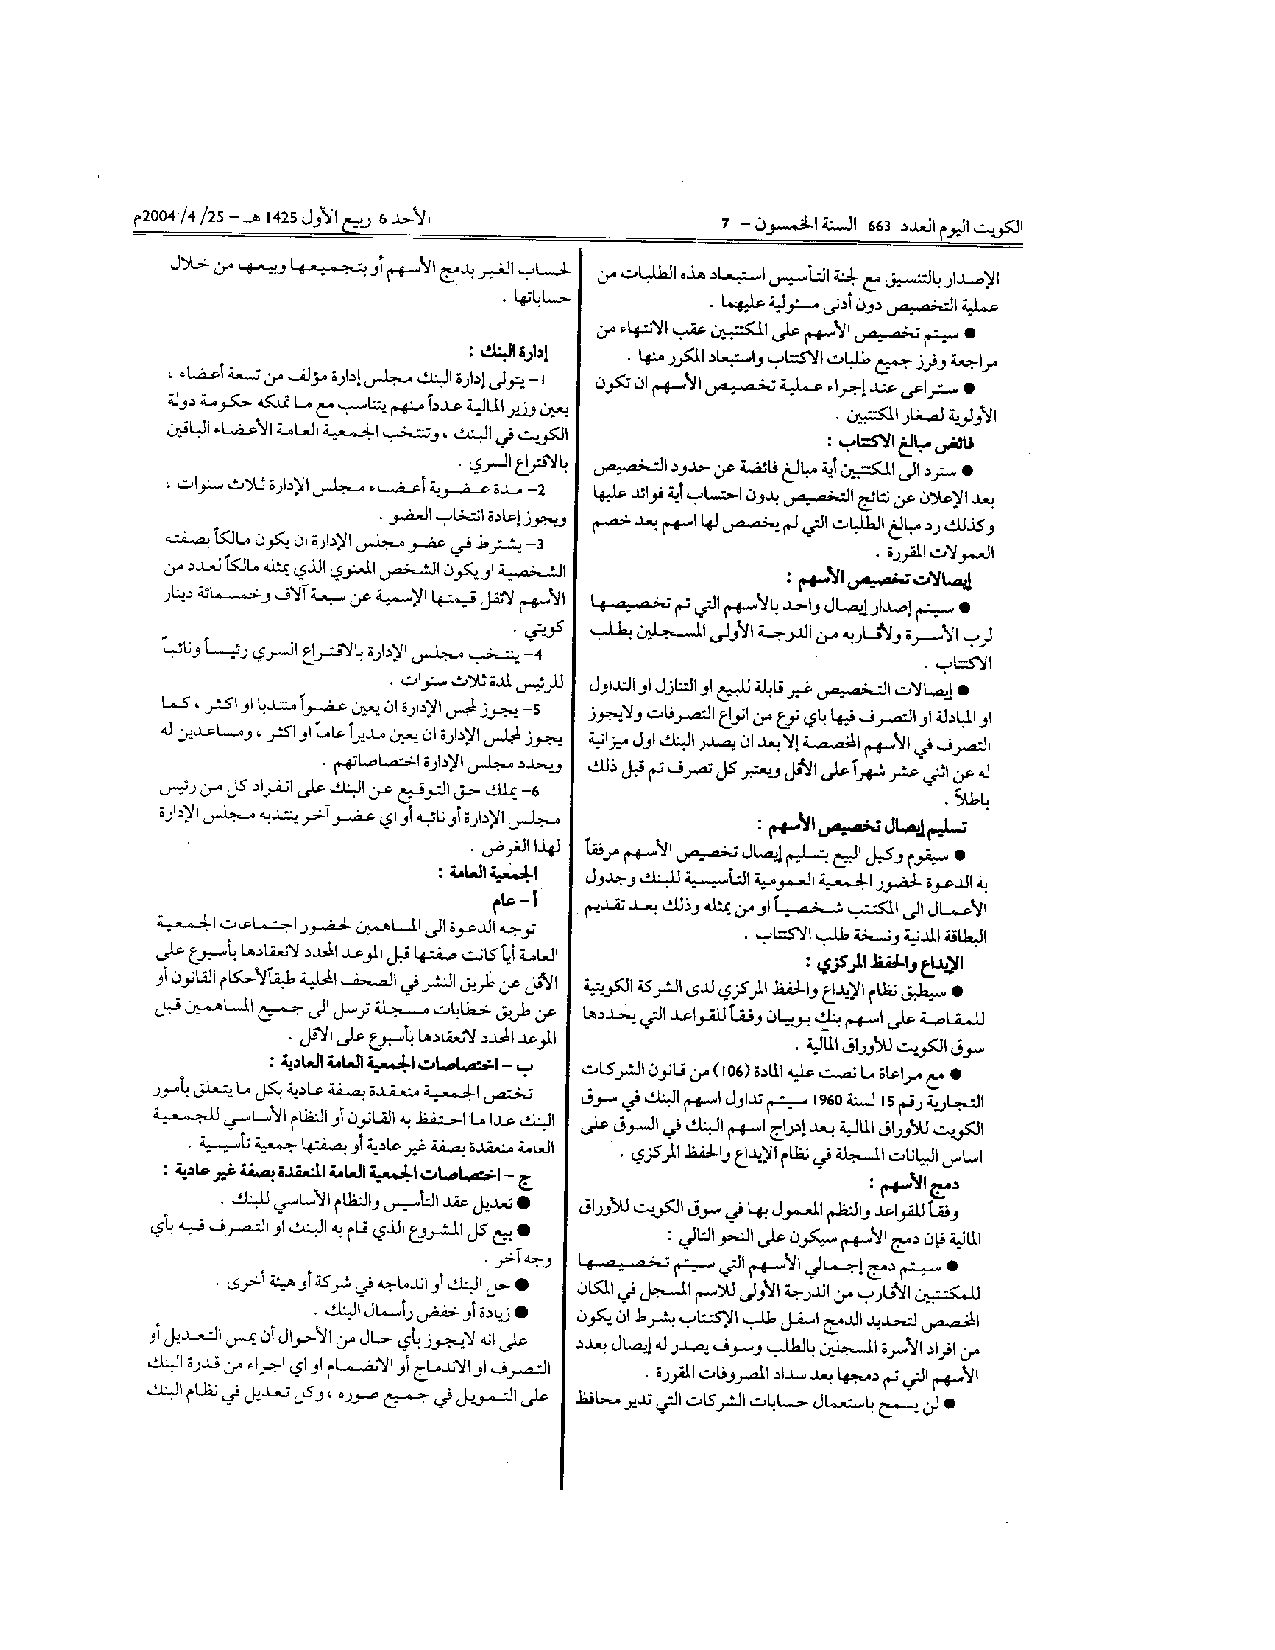 الكويت اليوم العدد 663 السنة الخمسون – 7
الأحد 6 ربيع الأول 1425 هـ – 25/ 4/ 2004م
الإصدار بالتنسيق مع لجنة التأسيس استبعاد هذه الطلبات من
عملية التخصيص دون أدنى مسئولية عليهما .
● سيتم تخصيص الأسهم على المكتتبين عقب الانتهاء من
مراجعة وفرز جميع طلبات الاكتتاب واستبعاد المكرر منها .
● ستراعى عند إجراء عملية تخصيص الأسهم ان تكون
الأولوية لصغار المكتتبين .
فائض مبالغ الاكتتاب :
● سترد الى المكتتبين أية مبالغ فائضة عن حدود التخصيص
بعد الإعلان عن نتائج التخصيص بدون احتساب أية فوائد عليها
وكذلك رد مبالغ الطلبات التي لم يخصص لها اسهم بعد خصم
العمولات المقررة .
إيصالات تخصيص الأسهم :
● سيتم إصدار إيصال واحد بالأسهم التي تم تخصيصها
لرب الأسرة ولأقاربه من الدرجة الأولى المسجلين بطلب
الاكتتاب .
● إيصالات التخصيص غير قابلة للبيع او التنازل او التداول
او المبادلة او التصرف فيها باي نوع من انواع التصرفات ولايجوز
التصرف في الأسهم المخصصة إلا بعد ان يصدر البنك اول ميزانية
له عن اثني عشر شهراً على الأقل ويعتبر كل تصرف تم قبل ذلك
باطلاً .
تسليم إيصال تخصيص الأسهم :
● سيقوم وكيل البيع بتسليم إيصال تخصيص الأسهم مرفقاً
به الدعوة لحضور الجمعية العمومية التأسيسية للبنك وجدول
الأعمال الى المكتتب شخصياً او من يمثله وذلك بعد تقديم
البطاقة المدنية ونسخة طلب الاكتتاب .
الإيداع والحفظ المركزي :
● سيطبق نظام الإيداع والحفظ المركزي لدى الشركة الكويتية
للمقاصة على اسهم بنك بوبيان وفقاً للقواعد التي يحددها
سوق الكويت للأوراق المالية .
● مع مراعاة ما نصت عليه المادة (106) من قانون الشركات
التجارية رقم 15 لسنة 1960 سيتم تداول اسهم البنك في سوق
الكويت للأوراق المالية بعد إدراج اسهم البنك في السوق على
اساس البيانات المسجلة في نظام الإيداع والحفظ المركزي .
دمج الأسهم :
وفقاً للقواعد والنظم المعمول بها في سوق الكويت للأوراق
المالية فإن دمج الأسهم سيكون على النحو التالي :
● سيتم دمج إجمالي الأسهم التي سيتم تخصيصها
للمكتتبين الأقارب من الدرجة الأولى للاسم المسجل في المكان
المخصص لتحديد الدمج اسفل طلب الإكتتاب بشرط ان يكون
من افراد الأسرة المسجلين بالطلب وسوف يصدر له إيصال بعدد
الأسهم التي تم دمجها بعد سداد المصروفات المقررة .
● لن يسمح باستعمال حسابات الشركات التي تدير محافظ
لحساب الغير بدمج الأسهم أو بتجميعها وبيعها من خلال
حساباتها .
إدارة البنك :
1– يتولى إدارة البنك مجلس إدارة مؤلف من تسعة أعضاء ،
يعين وزير المالية عدداً منهم يتناسب مع ما تملكه حكومة دولة
الكويت في البنك ، وتنتخب الجمعية العامة الأعضاء الباقين
بالاقتراع السري .
2– مدة عضوية أعضاء مجلس الإدارة ثلاث سنوات ،
ويجوز إعادة انتخاب العضو .
3– يشترط في عضو مجلس الإدارة ان يكون مالكاً بصفته
الشخصية او يكون الشخص المعنوي الذي يمثله مالكاً لعدد من
الأسهم لاتقل قيمتها الإسمية عن سبعة آلاف وخمسمائة دينار
كويتي .
4– ينتخب مجلس الإدارة بالاقتراع السري رئيساً ونائباً
للرئيس لمدة ثلاث سنوات .
5– يجوز لمجلس الإدارة ان يعين عضواً منتدبا او اكثر ، كما
يجوز لمجلس الإدارة ان يعين مديراً عاماً او اكثر ، ومساعدين له
ويحدد مجلس الإدارة اختصاصاتهم .
6– يملك حق التوقيع عن البنك على انفراد كل من رئيس
مجلس الإدارة أو نائبه أو اي عضو آخر ينتدبه مجلس الإدارة
لهذا الغرض .
الجمعية العامة :
أ – عام
توجه الدعوة الى المساهمين لحضور اجتماعات الجمعية
العامة أياً كانت صفتها قبل الموعد المحدد لانعقادها بأسبوع على
الأقل عن طريق النشر في الصحف المحلية طبقاً لأحكام القانون أو
عن طريق خطابات مسجلة ترسل الى جميع المساهمين قبل
الموعد المحدد لانعقادها بأسبوع على الاقل .
ب – اختصاصات الجمعية العامة العادية :
تختص الجمعية منعقدة بصفة عادية بكل ما يتعلق بأمور
البنك عدا ما احتفظ به القانون أو النظام الأساسي للجمعية
العامة منعقدة بصفة غير عادية أو بصفتها جمعية تأسيسية .
ج – اختصاصات الجمعية العامة المنعقدة بصفة غير عادية :
● تعديل عقد التأسيس والنظام الأساسي للبنك .
● بيع كل المشروع الذي قام به البنك او التصرف فيه بأي
وجه آخر .
● حل البنك أو اندماجه في شركة أو هيئة أخرى .
● زيادة أو خفض رأسمال البنك .
على انه لايجوز بأي حال من الأحوال أن يمس التعديل أو
التصرف او الاندماج أو الانضمام او اي اجراء من قدرة البنك
على التمويل في جميع صوره ، وكل تعديل في نظام البنك